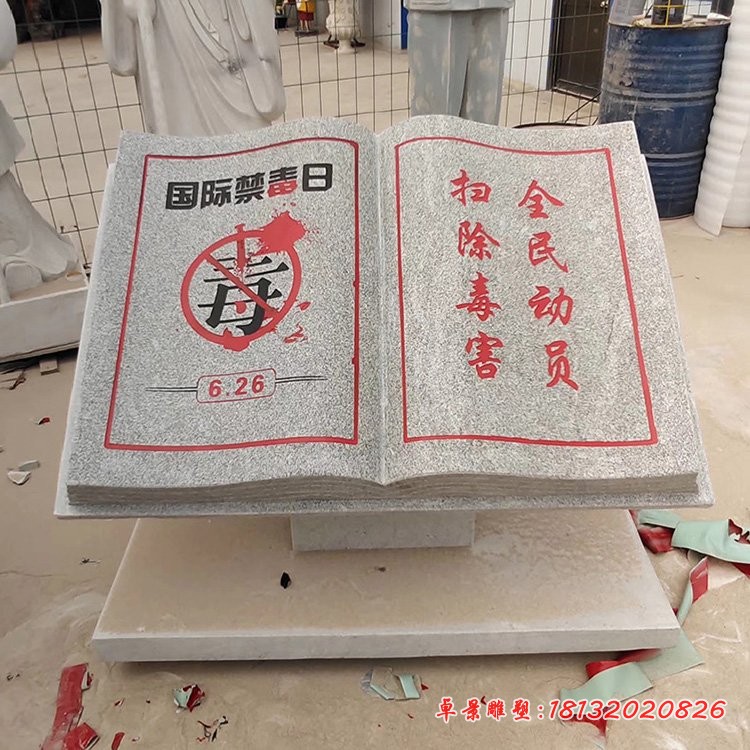 国际禁毒日
毒
6.26
全民动员
扫除毒害
卓景雕塑:18132020826